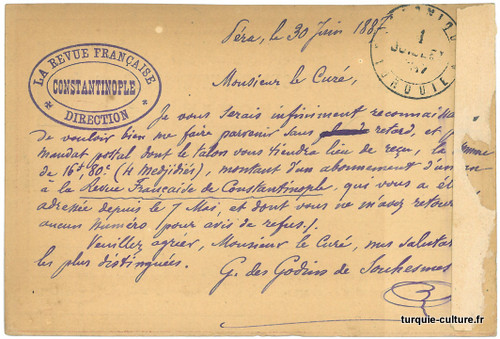 Péra, le 30 Juin 188
LA REVUE FRANÇAISE
CONSTANTINOPLE
DIRECTION
1
JUILLET
TURQUIE
Monsieur le Curé,
Je vous serais infiniment reconnai
de vouloir bien me faire parvenir sans retard, et p
mandat postal dont le talon vous tiendra lieu de reçu, la
de 16f 80c (4 Medjidiés), montant d'un abonnement d'un
à la Revue Française de Constantinople, qui vous a ét
adressée depuis le 7 Mai, et dont vous ne m'avez retour
aucun numéro (pour avis de refus).
Veuillez agréer, Monsieur le Curé, mes salutat
les plus distinguées.
G. des Godins de Souhesmes
turquie-culture.fr